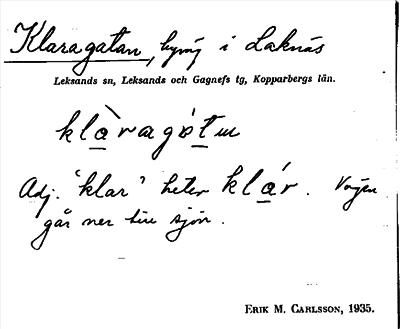 Klaragatan, byväg i Laknäs
Leksands sn, Leksands och Gagnefs tg, Kopparbergs län.
klàragatu
Adj. "klar" heter klár. Vägen
går ner till sjön.
ERIK M. CARLSSON, 1935.